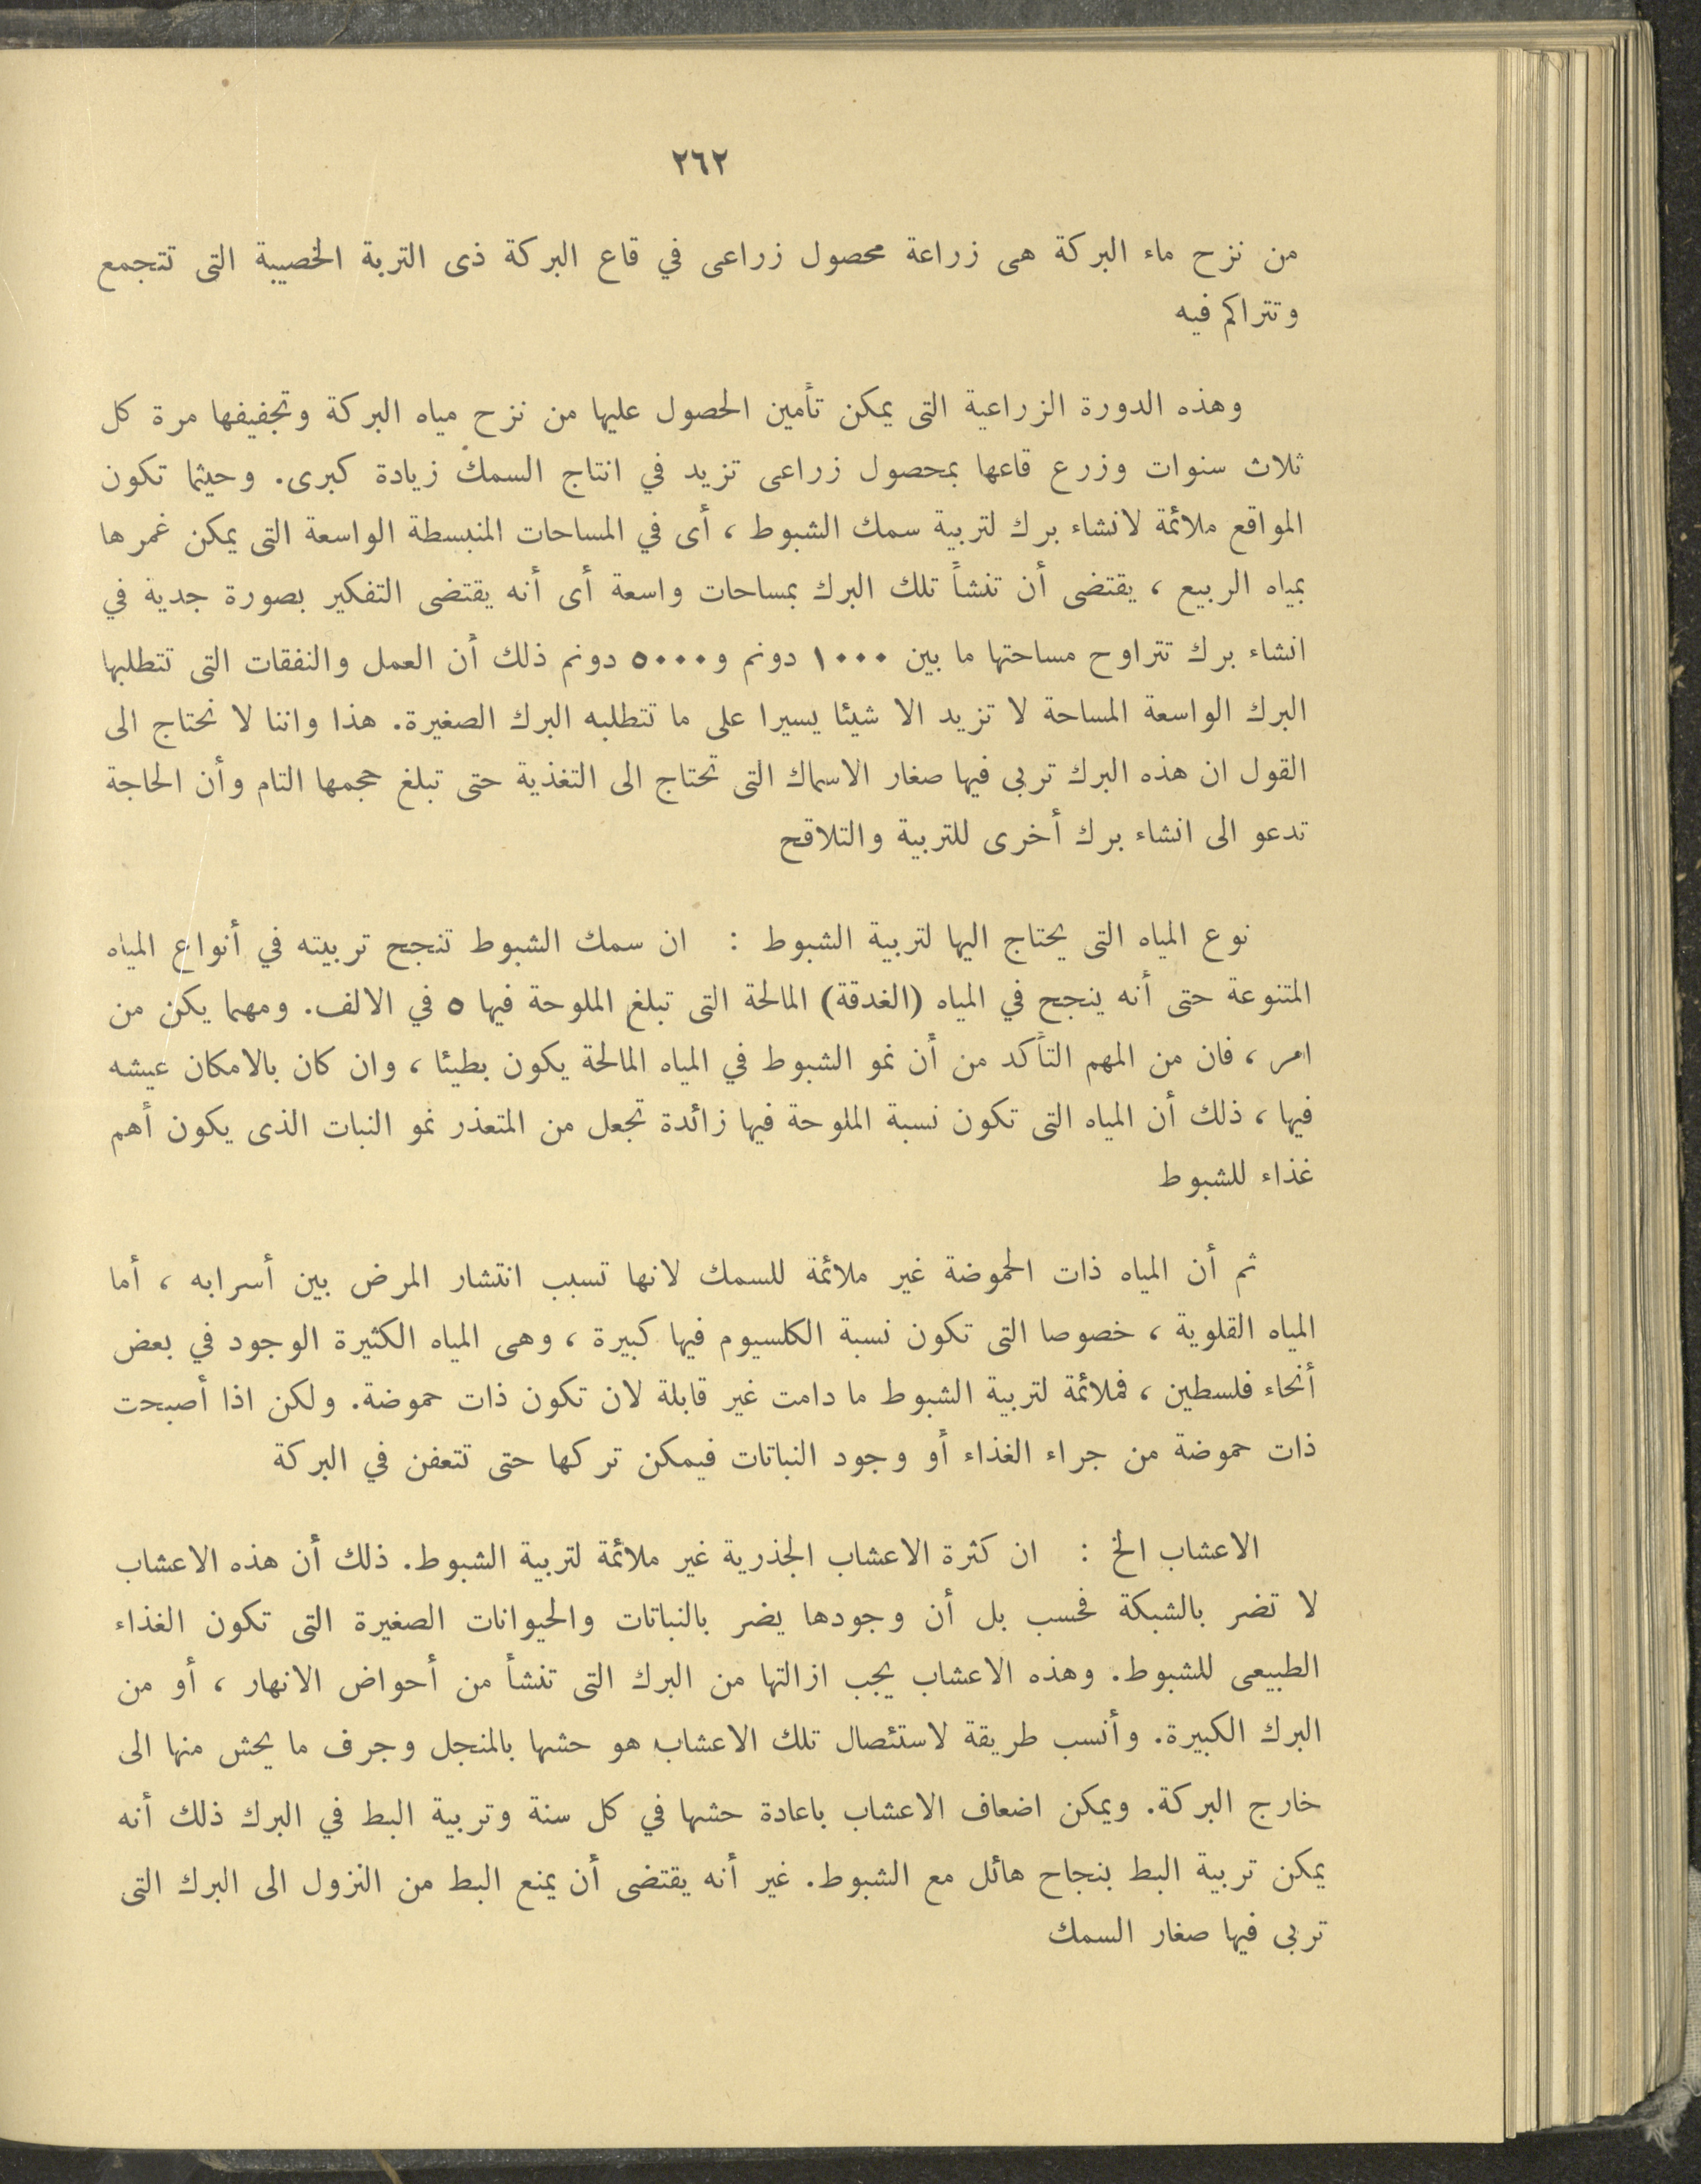 ٢٦٢
من نزح ماء البركة هى زراعة محصول زراعى في قاع البركة ذى التربة الخصيبة التى تتجمع
وتتراكم فيه
وهذه الدورة الزراعية التى يمكن تأمين الحصول عليها من نزح مياه البركة وتجفيفها مرة كل
ثلاث سنوات وزرع قاعها بمحصول زراعى تزيد في انتاج السمك زيادة كبرى. وحيثما تكون
المواقع ملائمة لانشاء برك لتربية سمك الشبوط ، أى في المساحات المنبسطة الواسعة التى يمكن غمرها
بمياه الربيع ، يقتضى أن تنشأ تلك البرك بمساحات واسعة أى أنه يقتضى التفكير بصورة جدية في
انشاء برك تتراوح مساحتها ما بين ١٠٠٠ دونم و٥٠٠٠ دونم ذلك أن العمل والنفقات التى تتطلبها
البرك الواسعة المساحة لا تزيد الا شيئا يسيرا على ما تتطلبه البرك الصغيرة. هذا واننا لا نحتاج الى
القول ان هذه البرك تربى فيها صغار الاسماك التى تحتاج الى التغذية حتى تبلغ حجمها التام وأن الحاجة
تدعو الى انشاء برك أخرى للتربية والتلاقح
نوع المياه التى يحتاج اليها لتربية الشبوط : ان سمك الشبوط تنجح تربيته في أنواع المياه
المتنوعة حتى أنه ينجح في المياه (الغدقة) المالحة التى تبلغ الملوحة فيها ٥ في الالف. ومهما يكن من
امر ، فان من المهم التأكد من أن نمو الشبوط في المياه المالحة يكون بطيئا ، وان كان بالامكان عيشه
فيها ، ذلك أن المياه التى تكون نسبة الملوحة فيها زائدة تجعل من المتعذر نمو النبات الذى يكون أهم
غذاء للشبوط
ثم أن المياه ذات الحموضة غير ملائمة للسمك لانها تسبب انتشار المرض بين أسرابه ، أما
المياه القلوية ، خصوصا التى تكون نسبة الكلسيوم فيها كبيرة ، وهى المياه الكثيرة الوجود في بعض
أنحاء فلسطين ، فملائمة لتربية الشبوط ما دامت غير قابلة لان تكون ذات حموضة. ولكن اذا أصبحت
ذات حموضة من جراء الغذاء أو وجود النباتات فيمكن تركها حتى تتعفن في البركة
الاعشاب الخ : ان كثرة الاعشاب الجذرية غير ملائمة لتربية الشبوط. ذلك أن هذه الاعشاب
لا تضر بالشبكة فحسب بل أن وجودها يضر بالنباتات والحيوانات الصغيرة التى تكون الغذاء
الطبيعى للشبوط. وهذه الاعشاب يجب ازالتها من البرك التى تنشأ من أحواض الانهار ، أو من
البرك الكبيرة. وأنسب طريقة لاستئصال تلك الاعشاب هو حشها بالمنجل وجرف ما يحش منها الى
خارج البركة. ويمكن اضعاف الاعشاب باعادة حشها في كل سنة وتربية البط في البرك ذلك أنه
يمكن تربية البط بنجاح هائل مع الشبوط. غير أنه يقتضى أن يمنع البط من النزول الى البرك التى
تربى فيها صغار السمك